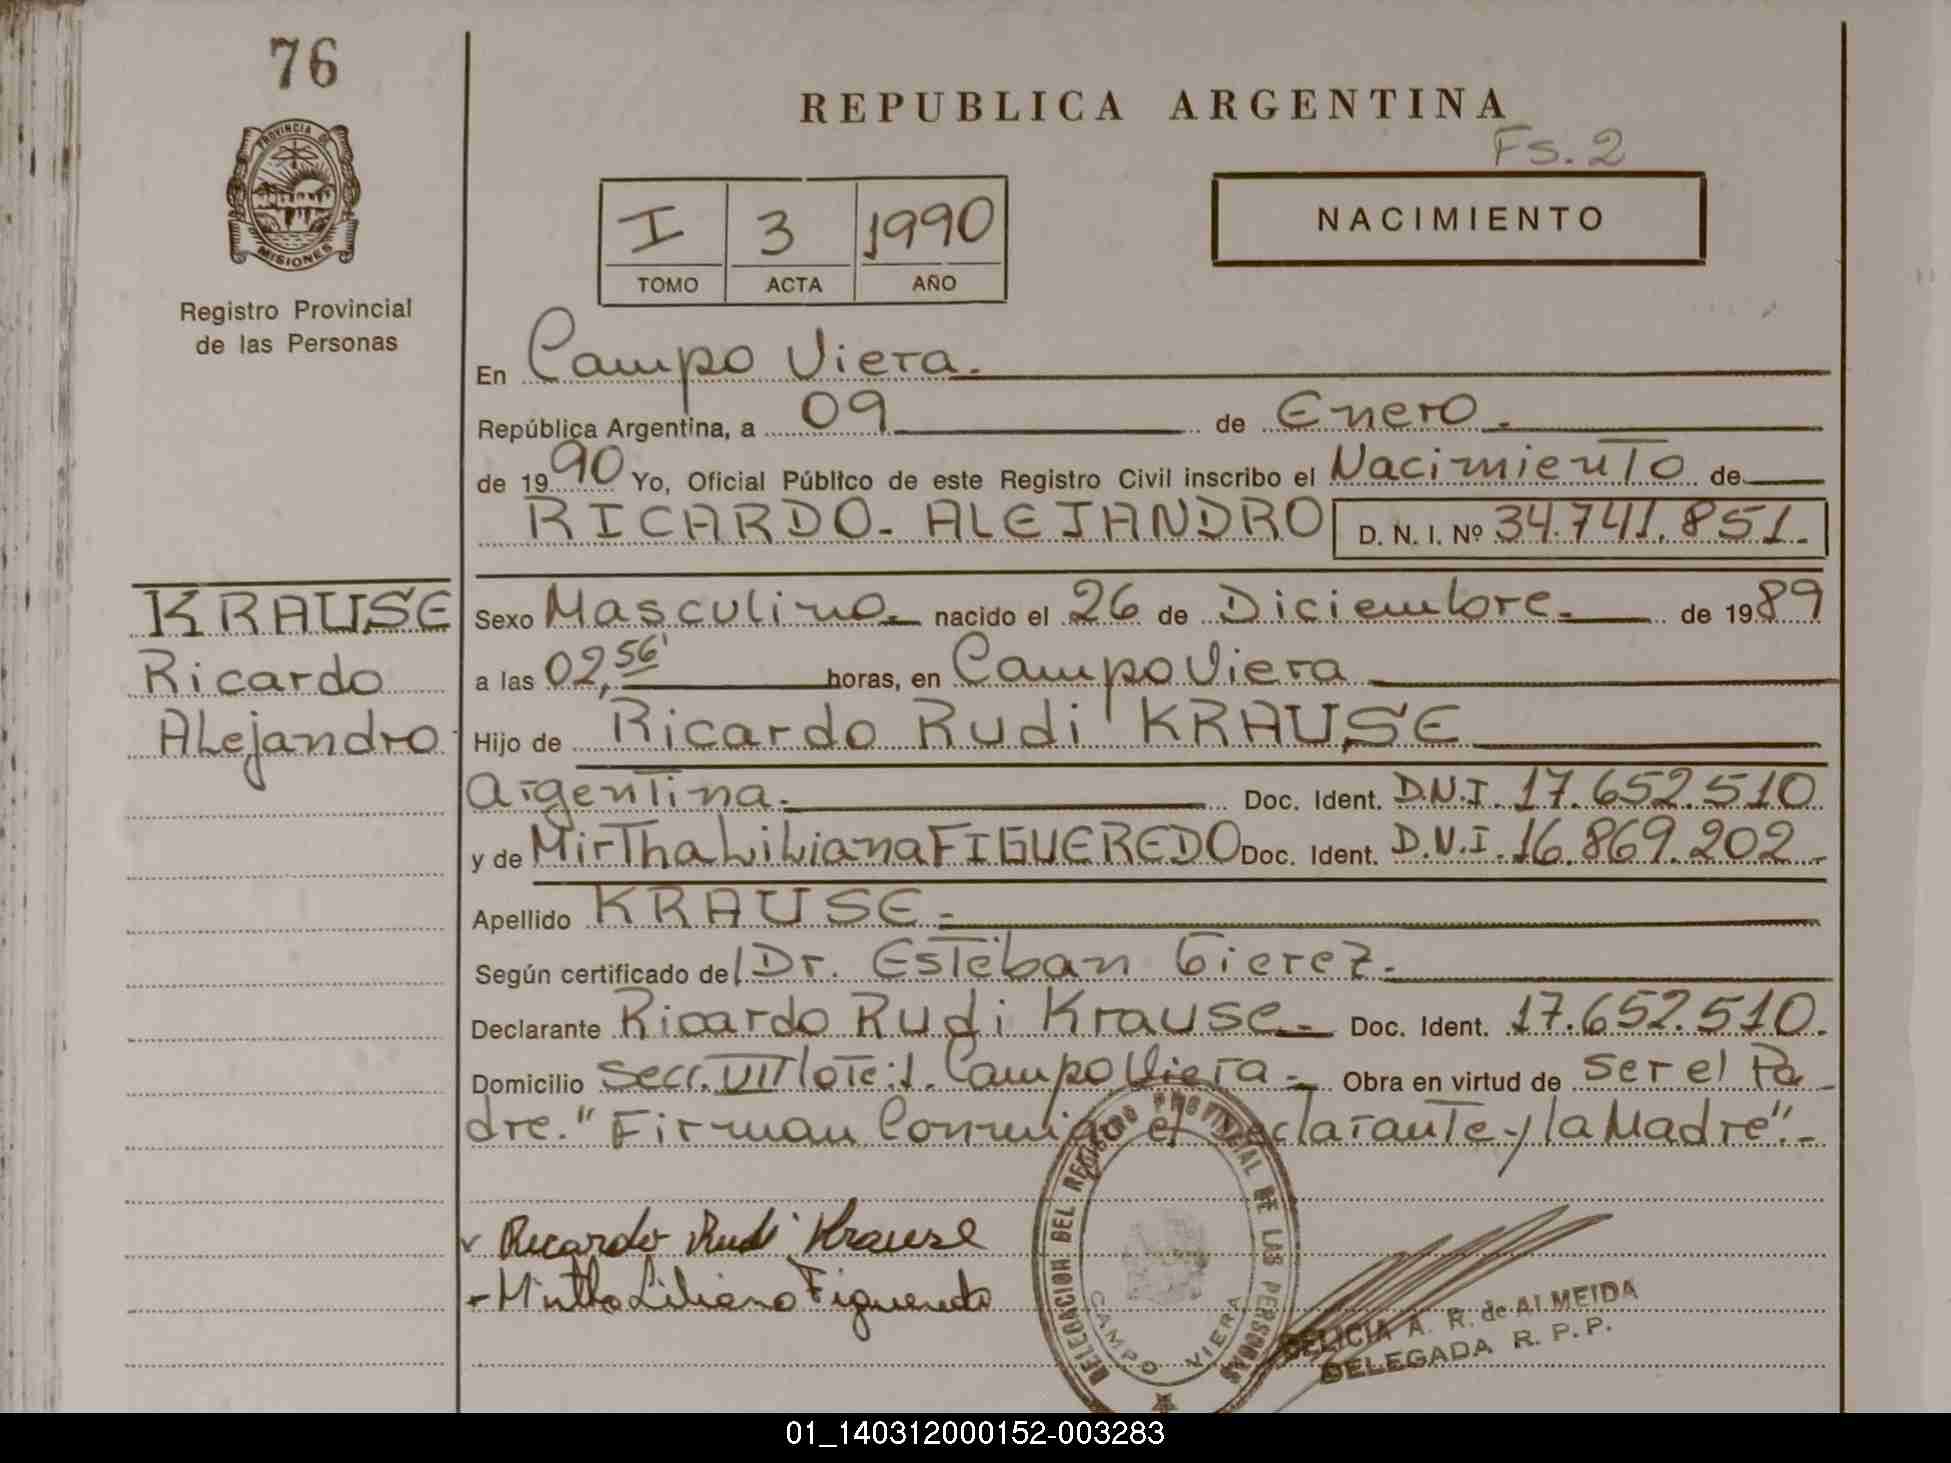 76
REPUBLICA ARGENTINA
Fs. 2
PROVINCIA DE
MISIONES
Registro Provincial
de las Personas
I 3 1990
TOMO ACTA AÑO
NACIMIENTO
En Campo Viera.
República Argentina, a 09 de Enero.
de 1990 Yo, Oficial Público de este Registro Civil inscribo el Nacimiento de
RICARDO- ALEJANDRO D. N. I. Nº 34.741.851.
KRAUSE
Ricardo
Alejandro
Sexo Masculino. nacido el 26 de Diciembre. de 1989
a las 02,56' horas, en Campo Viera
Hijo de Ricardo Rudi KRAUSE
Argentina. Doc. Ident. D.N.I. 17.652.510
y de Mirtha Liliana FIGUEREDO Doc. Ident. D.N.I. 16.869.202.
Apellido KRAUSE.-
Según certificado del Dr. Esteban Gierez.
Declarante Ricardo Rudi Krause.- Doc. Ident. 17.652.510.
Domicilio Secc. VII lote: 1. Campo Viera.- Obra en virtud de ser el Pa
dre. "Firman Conmigo el Declarante y la Madre".-
Ricardo Rudi Krause
- Mirtha Liliana Figueredo
DELEGACION DEL REGISTRO PROVINCIAL DE LAS PERSONAS
CAMPO VIERA
DELICIA A. R. de ALMEIDA
DELEGADA R. P. P.
01_140312000152-003283